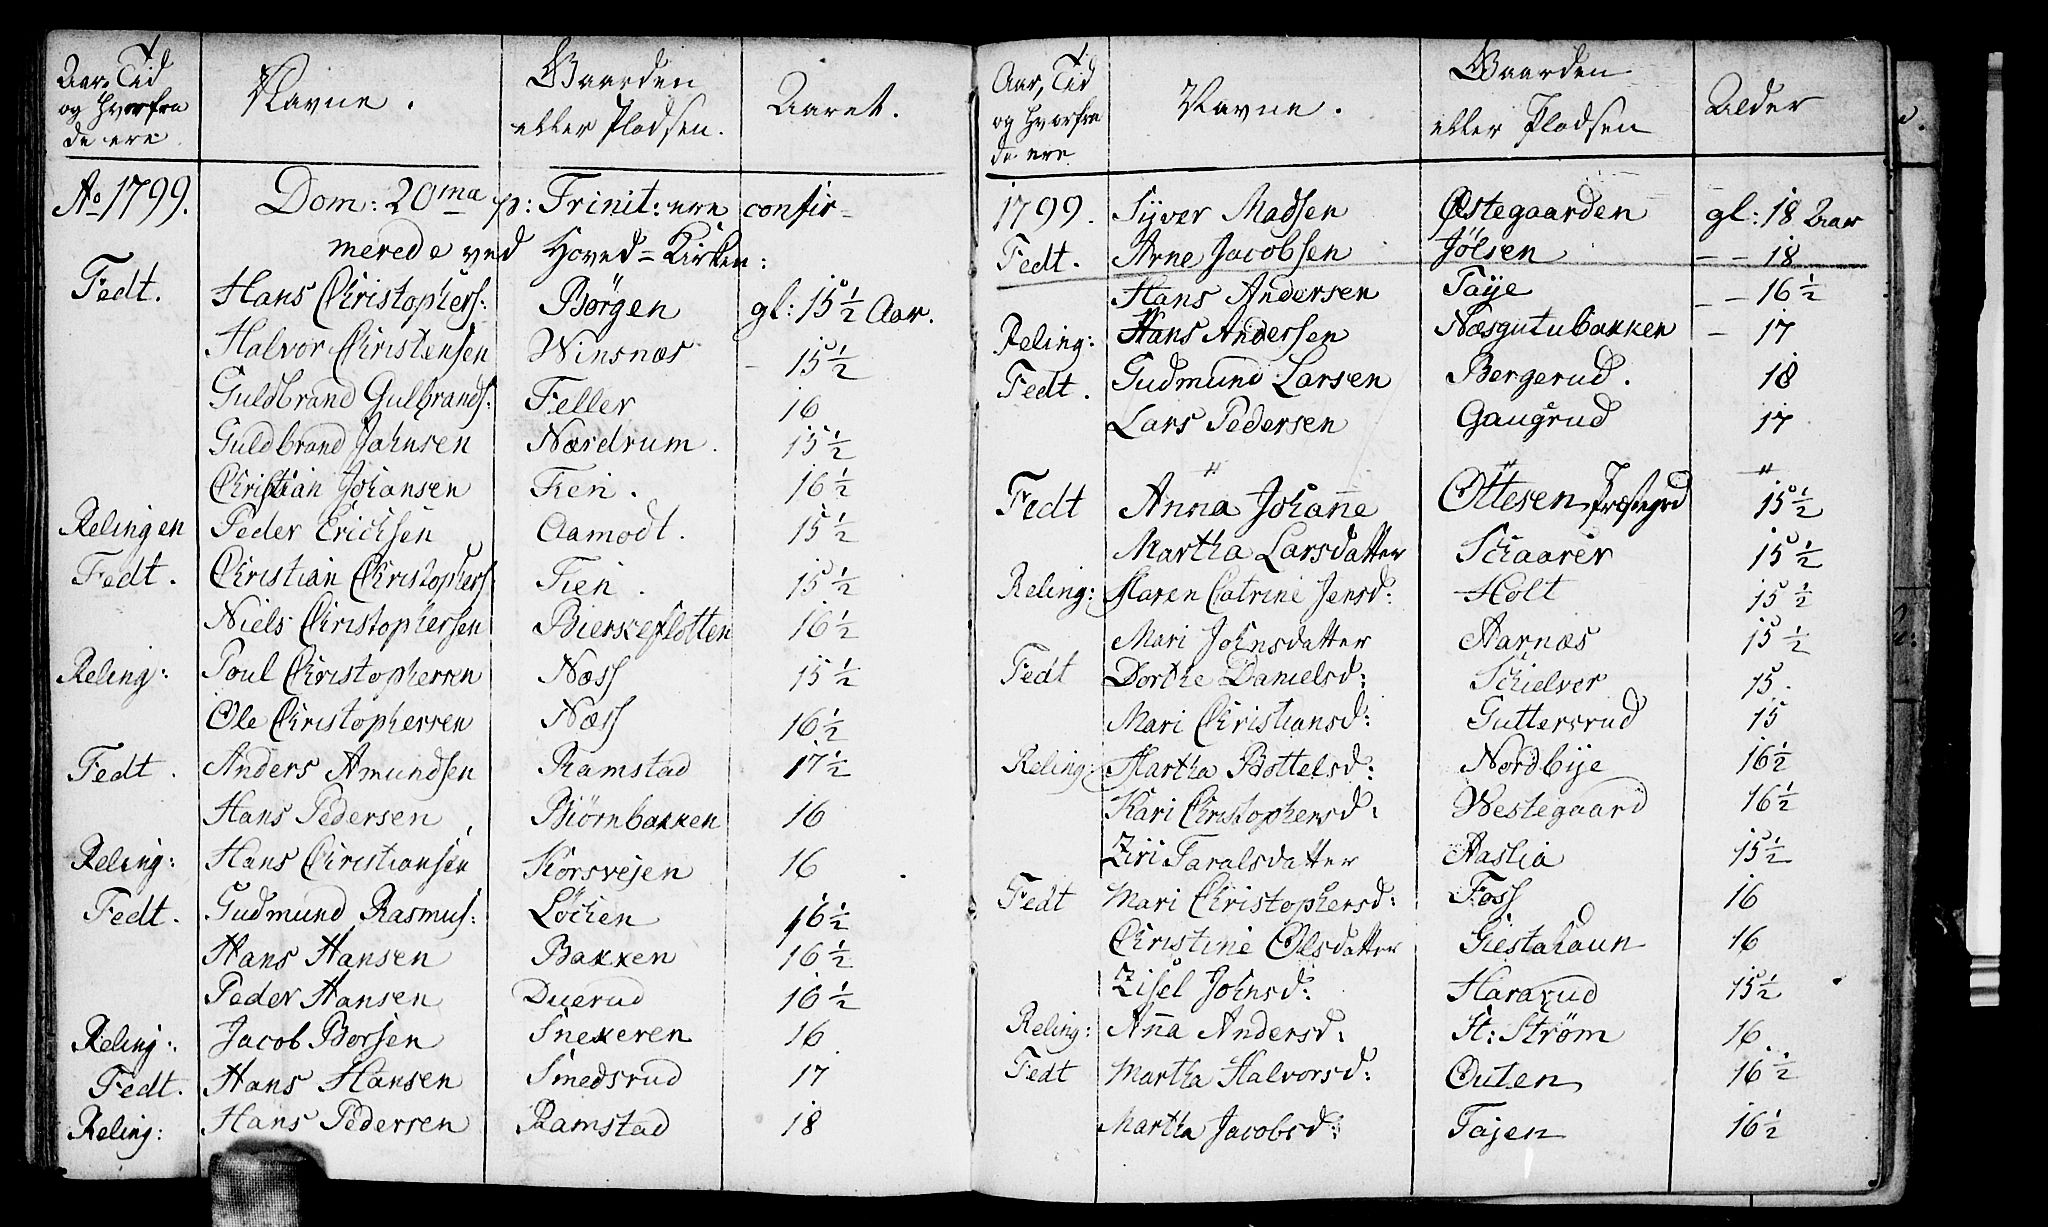 Aar, Tid og hvorfra de ere | Navne. | Gaarden eller Pladsen. | Aaret.
Ao 1799. Dom: 20ma p: Trinit: ere confir-
merede ved Hoved-Kirken:
Fedt. Hans Christophers: Børgen gl: 15 1/2 Aar.
Halvor Christensen Winsnæs - 15 1/2
Guldbrand Gulbrands: Feller 16
Guldbrand Jahnsen Nærdrum. 15 1/2
Christian Johansen Tien. 16 1/2
Relingen Peder Erichsen Aamodt. 15 1/2
Fedt. Christian Christophers Tien. 15 1/2
Niels Christophersen Bierkeflotten 16 1/2
Reling: Poul Christophersen Næss 15 1/2
Ole Christophersen Næss 16 1/2
Fedt. Anders Amundsen Ramstad 17 1/2
Hans Pedersen Biörnbakken 16
Reling: Hans Christiansen Korsvejen 16
Fedt. Gudmund Rasmus: Löchen 16 1/2
Hans Hansen Bakken 16 1/2
Peder Hansen Duerud 16 1/2
Reling: Jacob Borsen Snekeren 16
Fedt. Hans Hansen Smedsrud 17
Reling: Hans Pedersen Ramstad 18
Aar, Tid og hvorfra de ere | Navne. | Gaarden eller Pladsen | Alder
1799. Syver Madsen Østegaarden gl: 18 Aar
Fedt. Arne Jacobsen Jölsen - - 18
Hans Andersen Taije - - 16 1/2
Reling: Hans Andersen Næsgutubakken - 17
Fedt. Gudmund Larsen Bergerud. 18
Lars Pedersen Gaugrud 17
" " "
Fedt Anna Johanne Ottesen Præstegrd 15 1/2
Martha Larsdatter Schaarer 15 1/2
Reling: Maren Catrine Jensd: Holt 15 1/2
Mari Johnsdatter Aarnæs 15 1/2
Fedt Dorthe Danielsd: Schielver 15.
Mari Christiansd: Guttersrud 15
Reling: Martha Bottelsd: Nordbije 16 1/2
Kari Christophersd: Westegaard 16 1/2
Ziri Taralsdatter Haslia 15 1/2
Fedt Mari Christophersd: Foss 16
Christine Olsdatter Giestahaun 16
Zisel Johnsd: Hararud 15 1/2
Reling: Anna Andersd: St: Ström 16.
Fedt Martha Halvorsd: Outen 16 1/2
Martha Jacobsd: Tajen 16 1/2